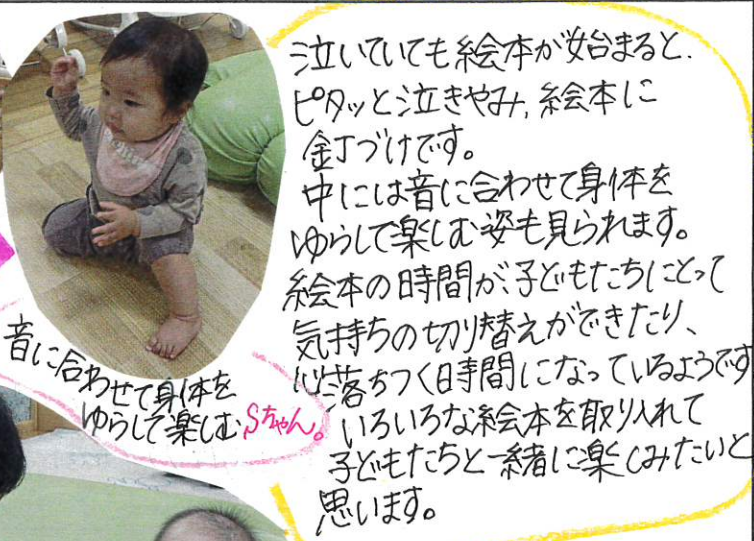 泣いていても絵本が始まると、
ピタッと泣きやみ、絵本に
釘づけです。
中には音に合わせて身体を
ゆらして楽しむ姿も見られます。
絵本の時間が、子どもたちにとって
気持ちの切り替えができたり、
心落ちつく時間になっているようです
いろいろな絵本を取り入れて
子どもたちと一緒に楽しみたいと
思います。
音に合わせて身体を
ゆらして楽しむSちゃん。